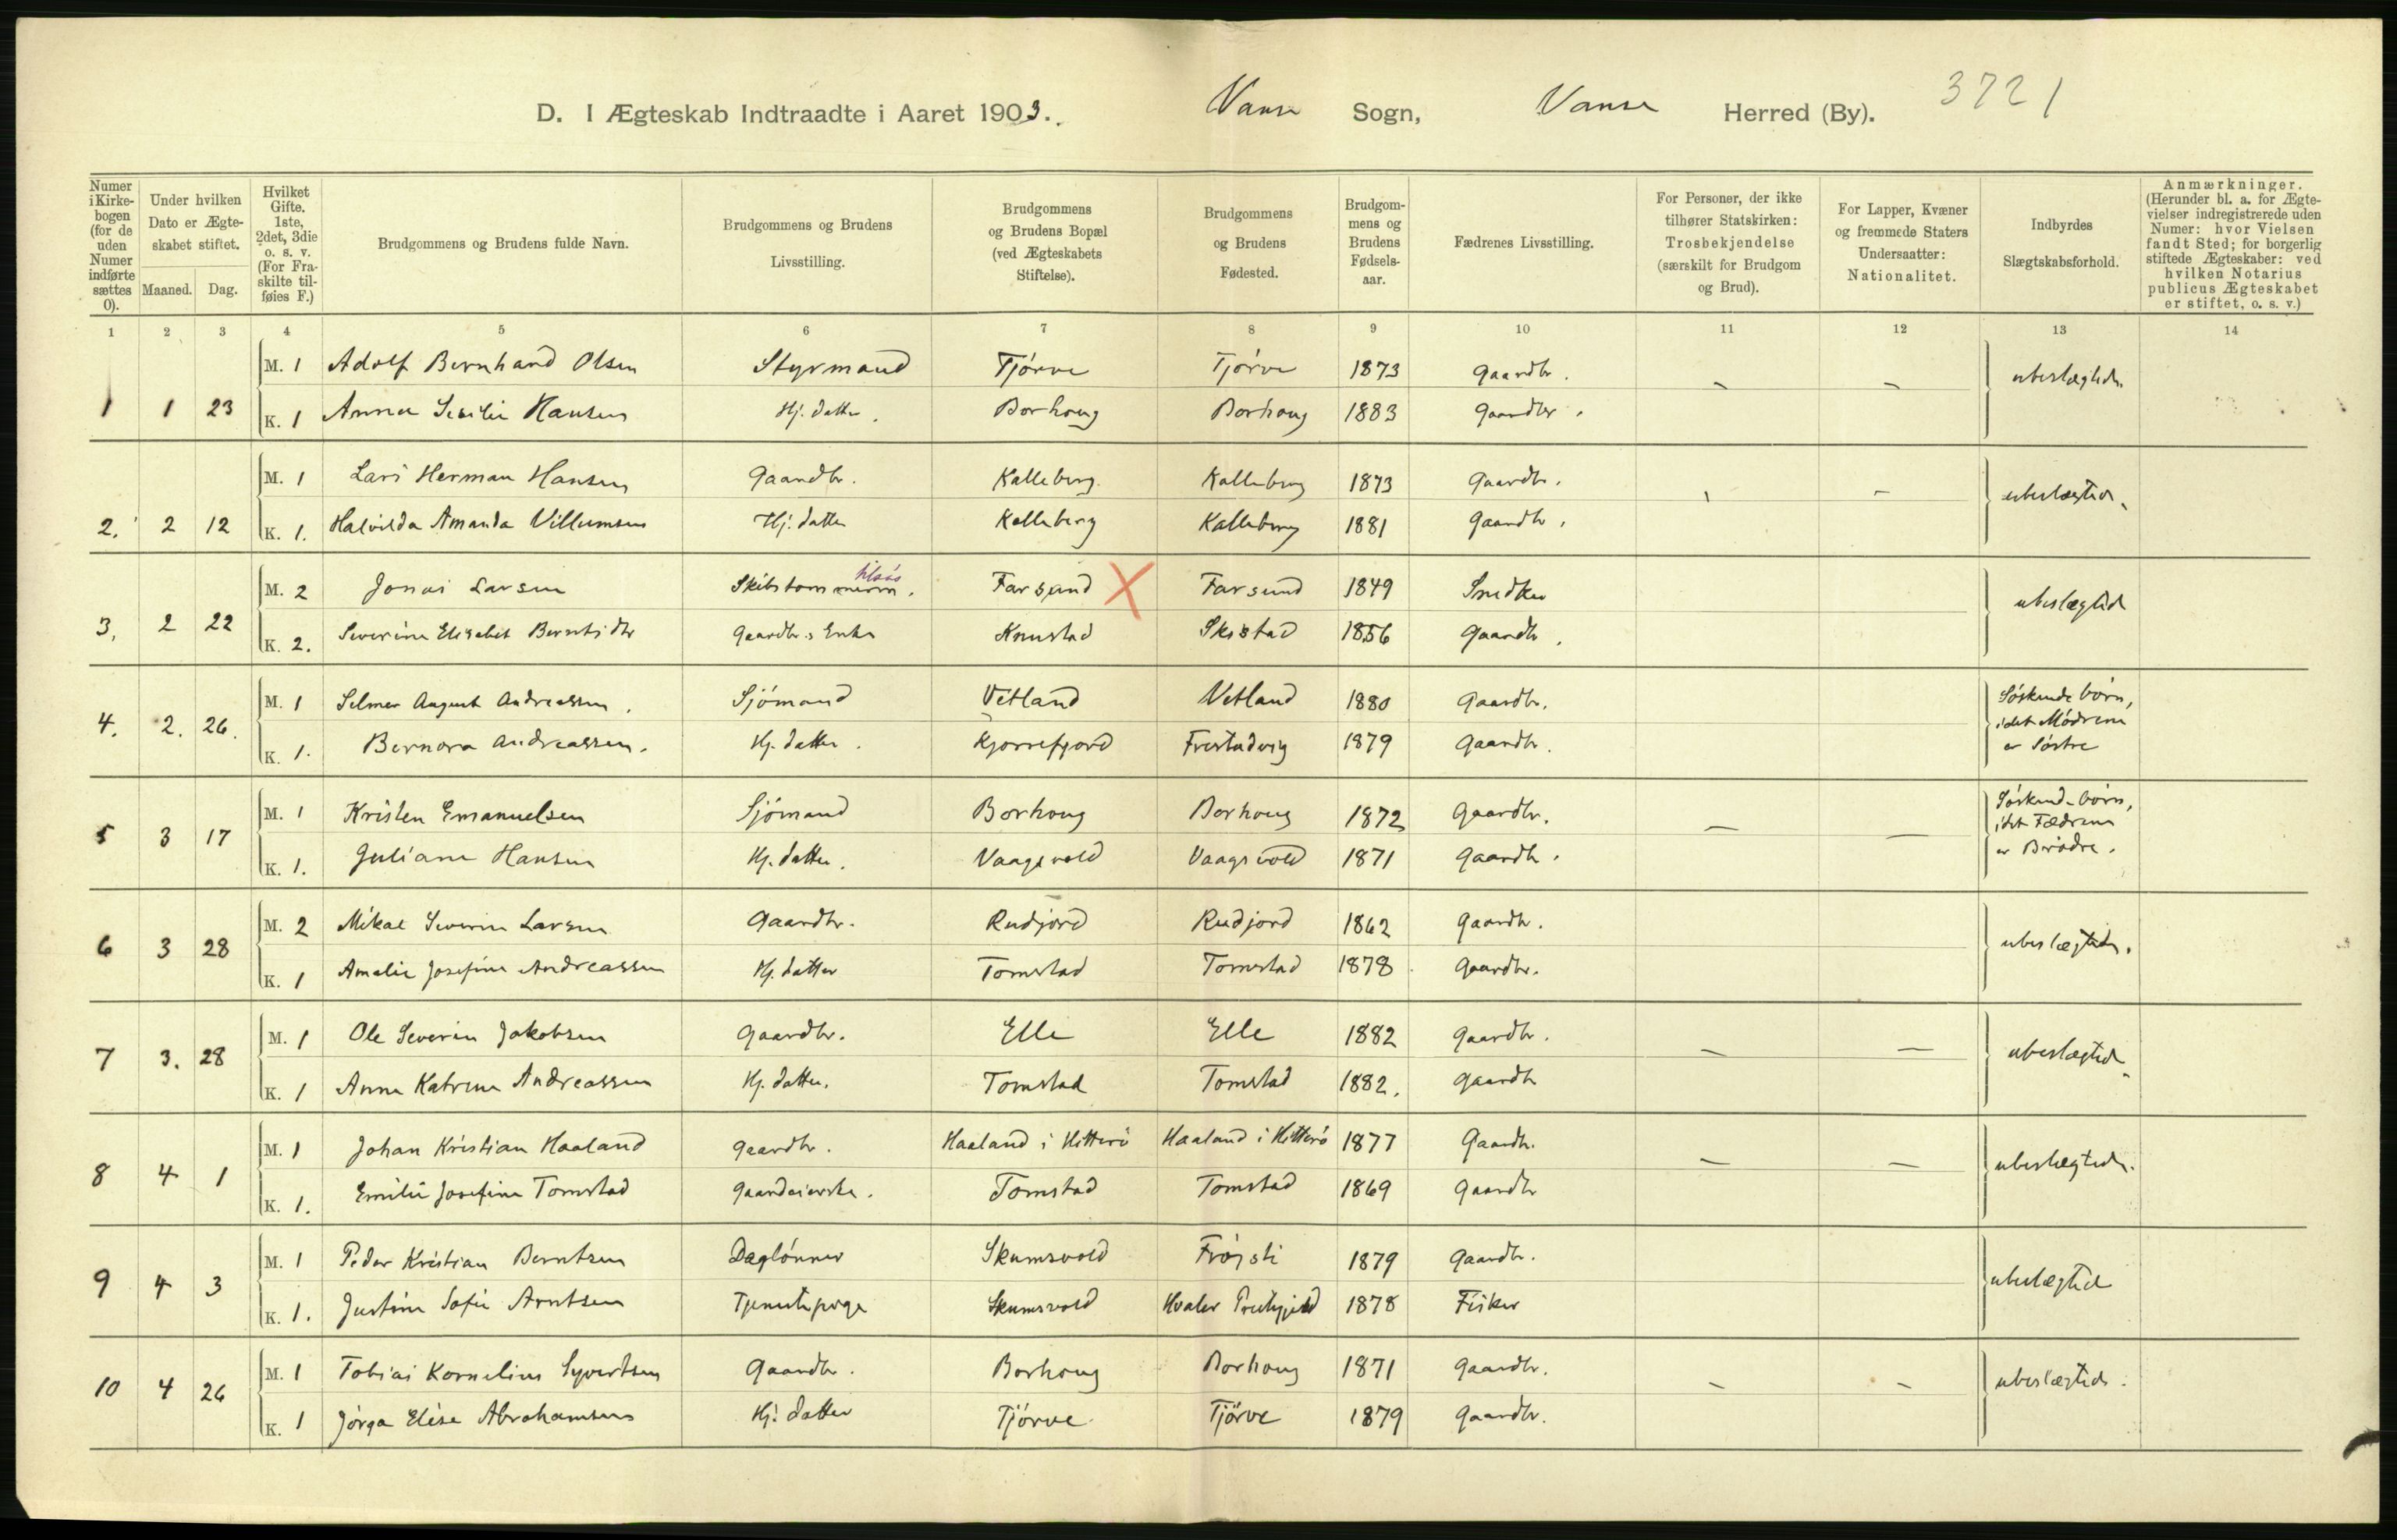 3721
D. I Ægteskab Indtraadte i Aaret 1903. Vanse Sogn, Vanse Herred (By).
Numer i Kirkebogen (for de uden Numer indførte sættes 0). | Under hvilken Dato er Ægteskabet stiftet. Maaned. Dag. | Hvilket Gifte. 1ste, 2det, 3die o. s. v. (For Fraskilte tilføies F.) | Brudgommens og Brudens fulde Navn. | Brudgommens og Brudens Livsstilling. | Brudgommens og Brudens Bopæl (ved Ægteskabets Stiftelse). | Brudgommens og Brudens Fødested. | Brudgommens og Brudens Fødselsaar. | Fædrenes Livsstilling. | For Personer, der ikke tilhører Statskirken: Trosbekjendelse (særskilt for Brudgom og Brud). | For Lapper, Kvæner og fremmede Staters Undersaatter: Nationalitet. | Indbyrdes Slægtskabsforhold. | Anmærkninger. (Herunder bl. a. for Ægtevielser indregistrerede uden Numer: hvor Vielsen fandt Sted; for borgerlig stiftede Ægteskaber: ved hvilken Notarius publicus Ægteskabet er stiftet, o. s. v.)
1 2 3 4 5 6 7 8 9 10 11 12 13 14
M. 1 Adolf Bernhard Olsen Styrmand Tjörve Tjörve 1873 Gaardbr. – – ubeslægtede.
1 1 23 K. 1 Anna Sesilie Hansen Hj. datter. Borhoug Borhoug 1883 Gaardbr.
M. 1 Lars Herman Hansen Gaardbr. Kalleberg Kalleberg 1873 Gaardbr. – – ubeslægtede.
2. 2 12 K. 1. Halvilda Amanda Villumsen Hj. datter Kalleberg Kalleberg 1881 Gaardbr.
M. 2 Jonas Larsen Skibstømmerm. tilsös Farsund X Farsund 1849 Snedker ubeslægted
3. 2 22 K. 2. Severine Elisabet Berntsdtr Gaardbr.s Enke Knustad Skistad 1856 Gaardbr.
M. 1 Selmer August Andreassen. Sjömand Vetland Vetland 1880 Gaardbr. Söskendebörn,
idet Mödrene
4. 2. 26. K. 1. Bernora Andreassen. Hj. datter. Kjørrefjord Frestadvig 1879 Gaardbr. er Söstre
M. 1 Kristen Emanuelsen Sjömand Borhoug Borhoug 1872 Gaardbr. – – Söskendebörn,
idet Fædrene
5 3 17 K. 1. Juliane Hansen Hj. datter. Vaagsvold Vaagsvold 1871 Gaardbr. er Brödre.
M. 2 Mikal Severin Larsen Gaardbr. Rudjord Rudjord 1862 Gaardbr. ubeslægtede.
6 3 28 K. 1 Amalie Josefine Andreassen Hj. datter Tomstad Tomstad 1878 Gaardbr.
M. 1 Ole Severin Jakobsen Gaardbr. Elle Elle 1882 Gaardbr. – – ubeslægted
7 3. 28 K. 1 Anne Katrine Andreassen Hj. datter. Tomstad Tomstad 1882. Gaardbr
M. 1 Johan Kristian Haaland Gaardbr. Haaland i Hitterö Haaland i Hitterö 1877 Gaardbr. – – ubeslægtede.
8 4 1 K. 1. Emilie Josefine Tomstad Gaardeierske. Tomstad Tomstad 1869 Gaardbr
M. 1 Peder Kristian Berntsen Daglönner Skumsvold Fröjsti 1879 Gaardbr. ubeslægted
9 4 3 K. 1. Justine Sofie Arntsen Tjenestepige Skumsvold Hvaler Præstegjeld 1878 Fisker
M. 1 Tobias Kornelius Syvertsen Gaardbr. Borhoug Borhoug 1871 Gaardbr. – – ubeslægtede.
10 4 26 K. 1 Jörga Elise Abrahamsen Hj. datter Tjörve Tjörve 1879 Gaardbr.